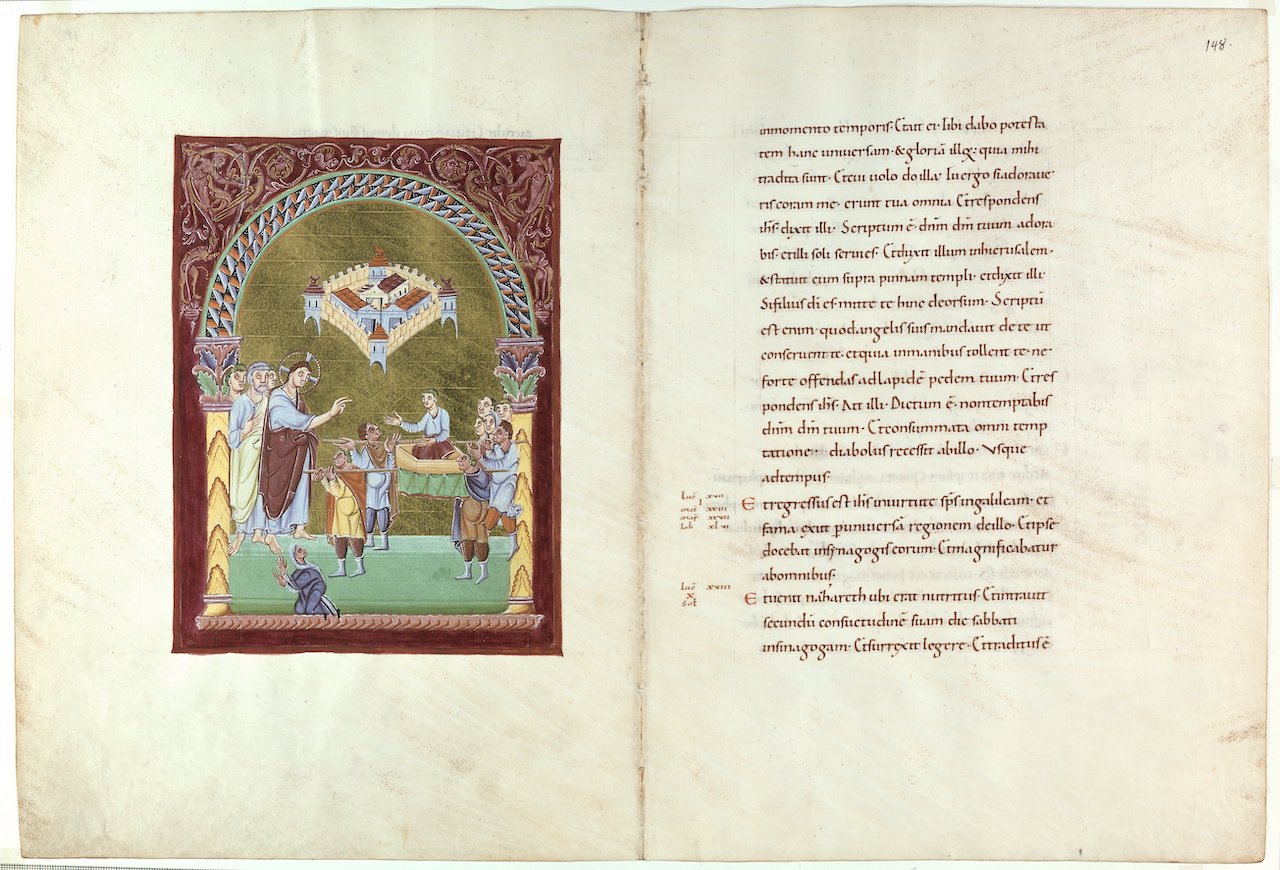 148.
inmomento temporis· Et ait ei· Tibi dabo potesta
tem hanc universam· &gloriā illoꝝ· quia mihi
tradita sunt· Et cui volo do illa· Tu ergo si adorave
ris coram me· erunt tua omnia Et respondens
ihs̄ dixit illi· Scriptum ē· dnm̄ dm̄ tuum adora
bis· et illi soli servies· Et duxit illum inhierusalem·
&statuit eum supra pinnam templi· et dixit illi·
Si filius di̅ es· mitte te hinc deorsum· Scriptū
est enim· quod angelis suis mandavit de te ut
conservent te· et quia inmanibus tollent te· ne
forte offendas ad lapidē pedem tuum· Et res
pondens ihs̄· Ait illi· Dictum ē· non temptabis
dnm̄ dm̄ tuum· Et consummata omni temp
tatione· diabolus recessit ab illo· Usque
ad tempus·
Et regressus est ihs̄ invirtute sp̄s ingalileam· et
fama exiit ꝑ universā regionem de illo· Et ipse
docebat insynagogis eorum· Et magnificabatur
ab omnibus·
Et venit nazareth ubi erat nutritus· Et intravit
secundū consuetudinē suam die sabbati
insinagogam· Et surrexit legere· Et traditus ē